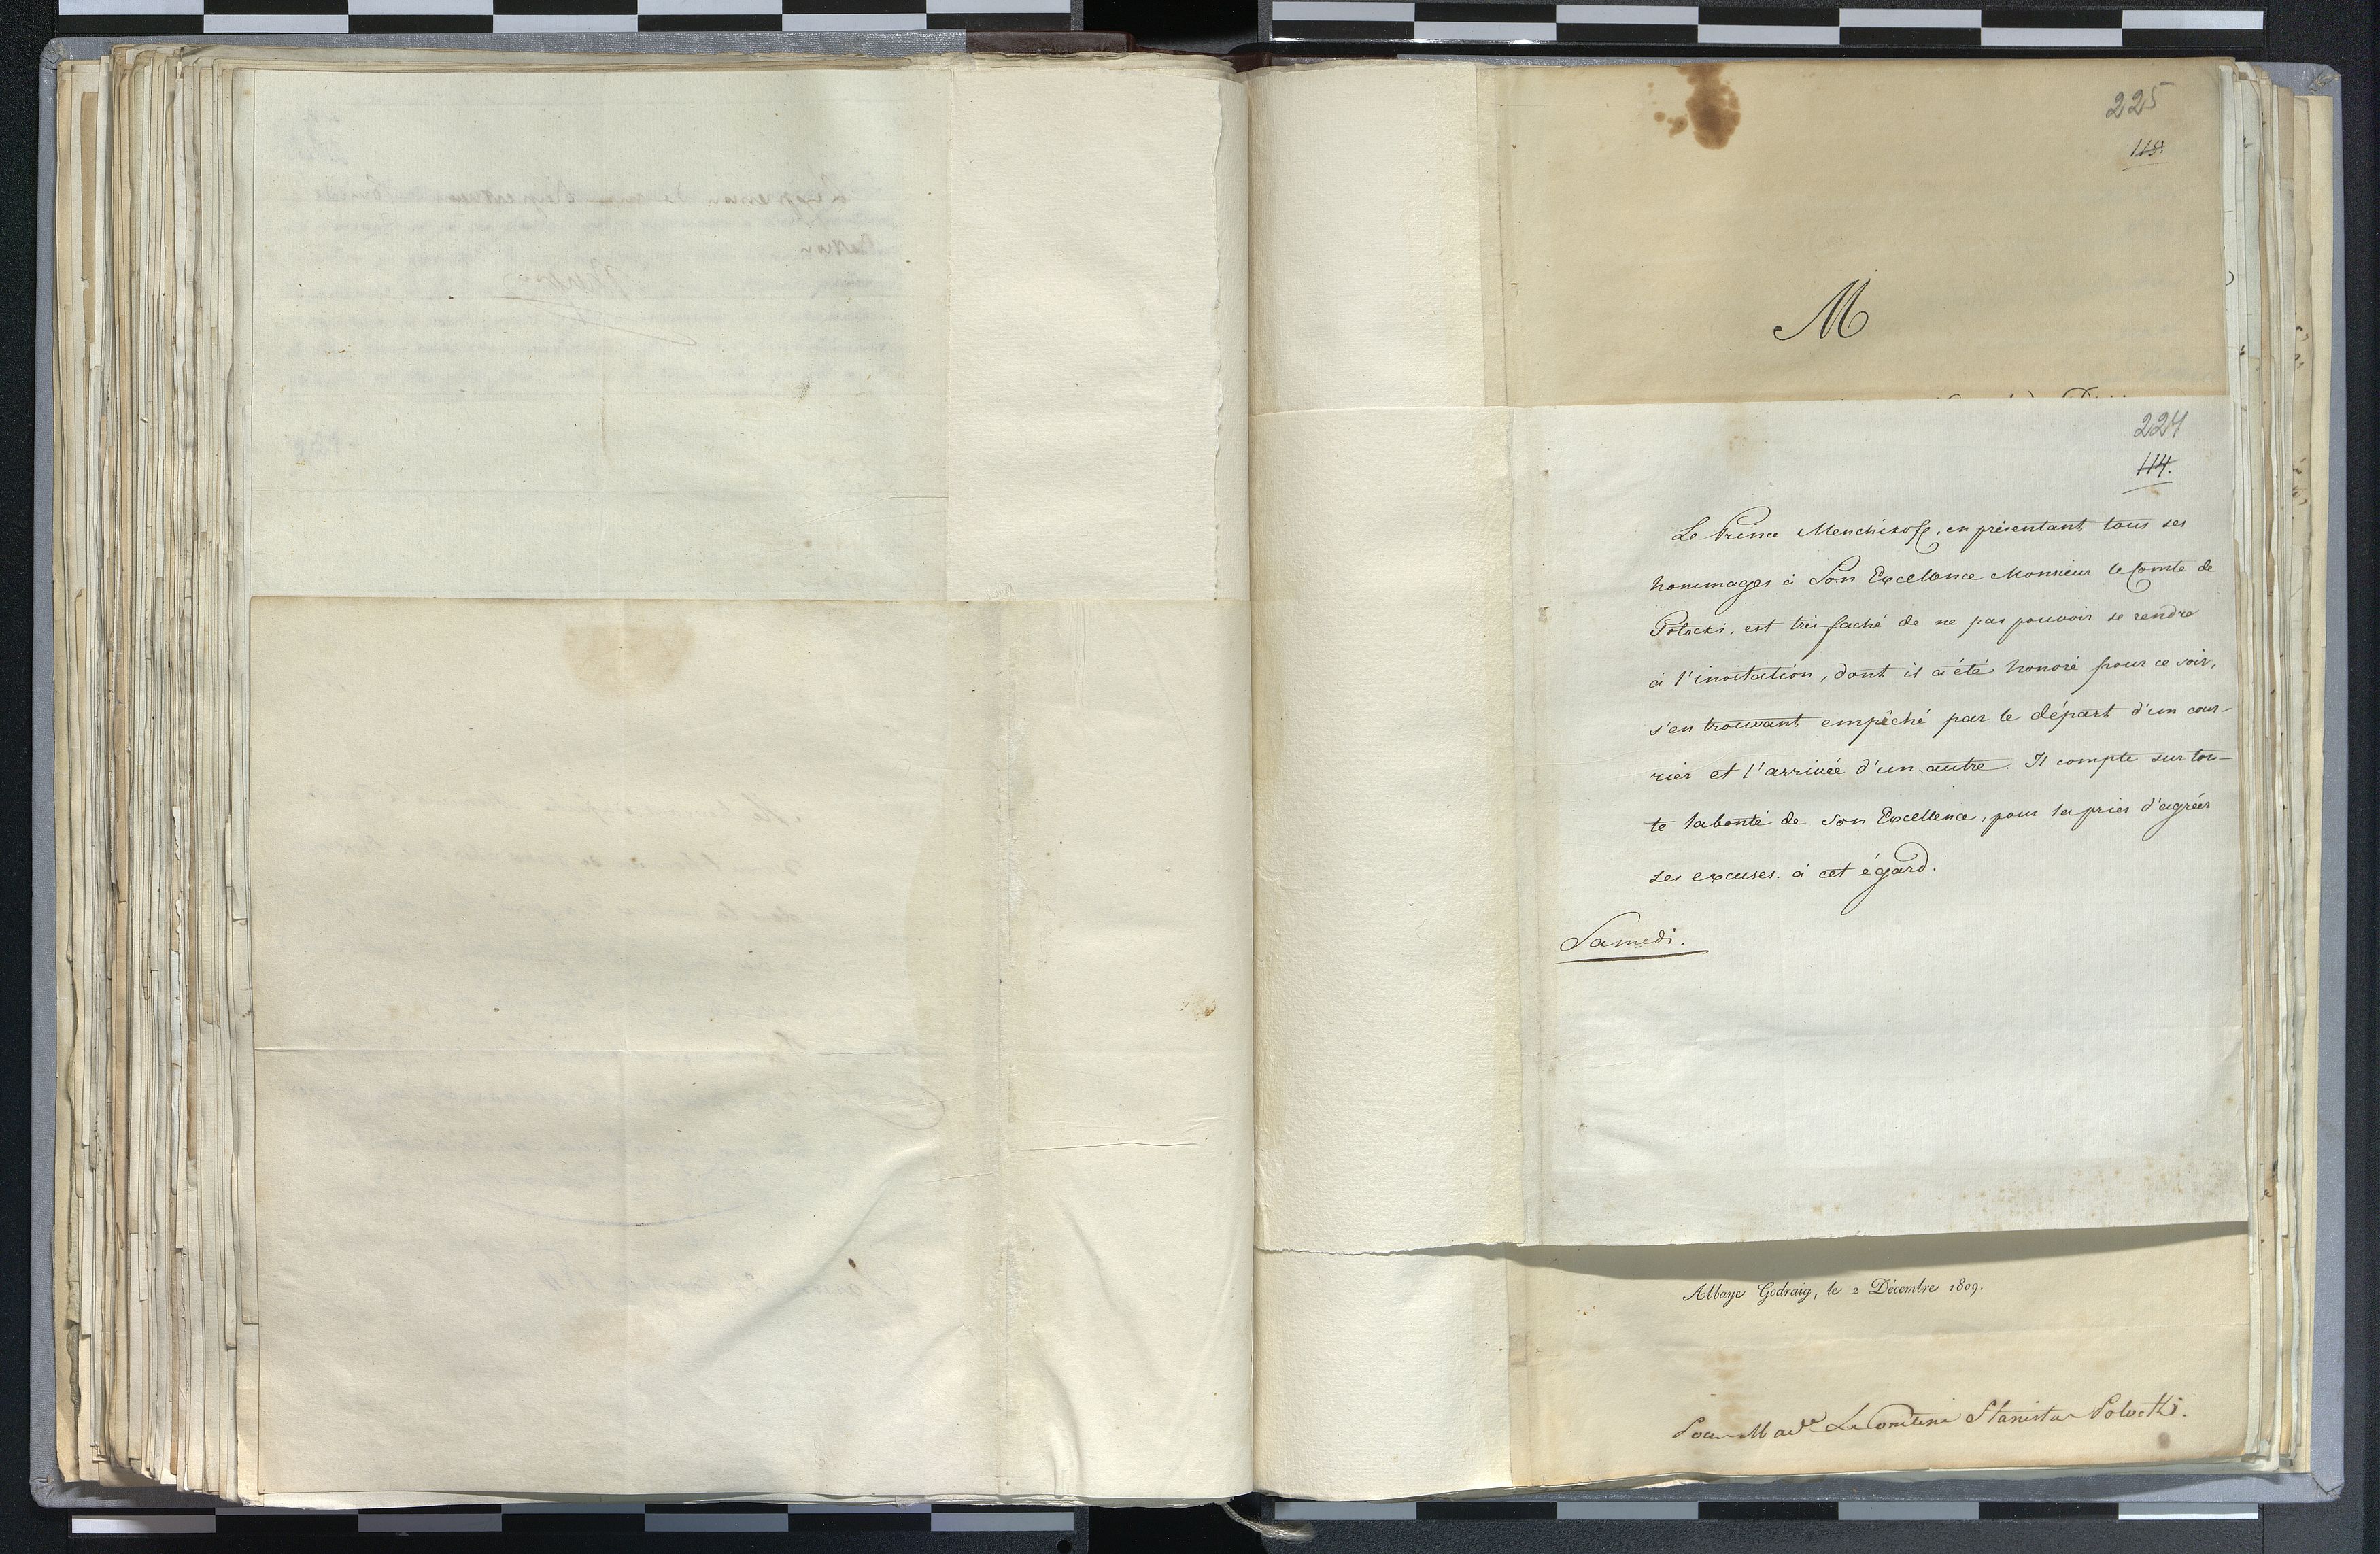 225
118.
M
224
114.
Le Prince Menchikoff, en présentant tous ses
hommages à Son Excellence Monsieur le Comte de
Potocki, est très faché de ne pas pouvoir se rendre
à l'invitation, dont il a été honoré pour ce soir,
s'en trouvant empêché par le départ d'un cour-
rier et l'arrivée d'un autre. Il compte sur tou-
te la bonté de Son Excellence, pour la prier d'agréer
ses excuses à cet égard.
Samedi.
Abbaye Godraig, le 2 Décembre 1809.
Pour Made La Comtesse Stanislas Potocki.